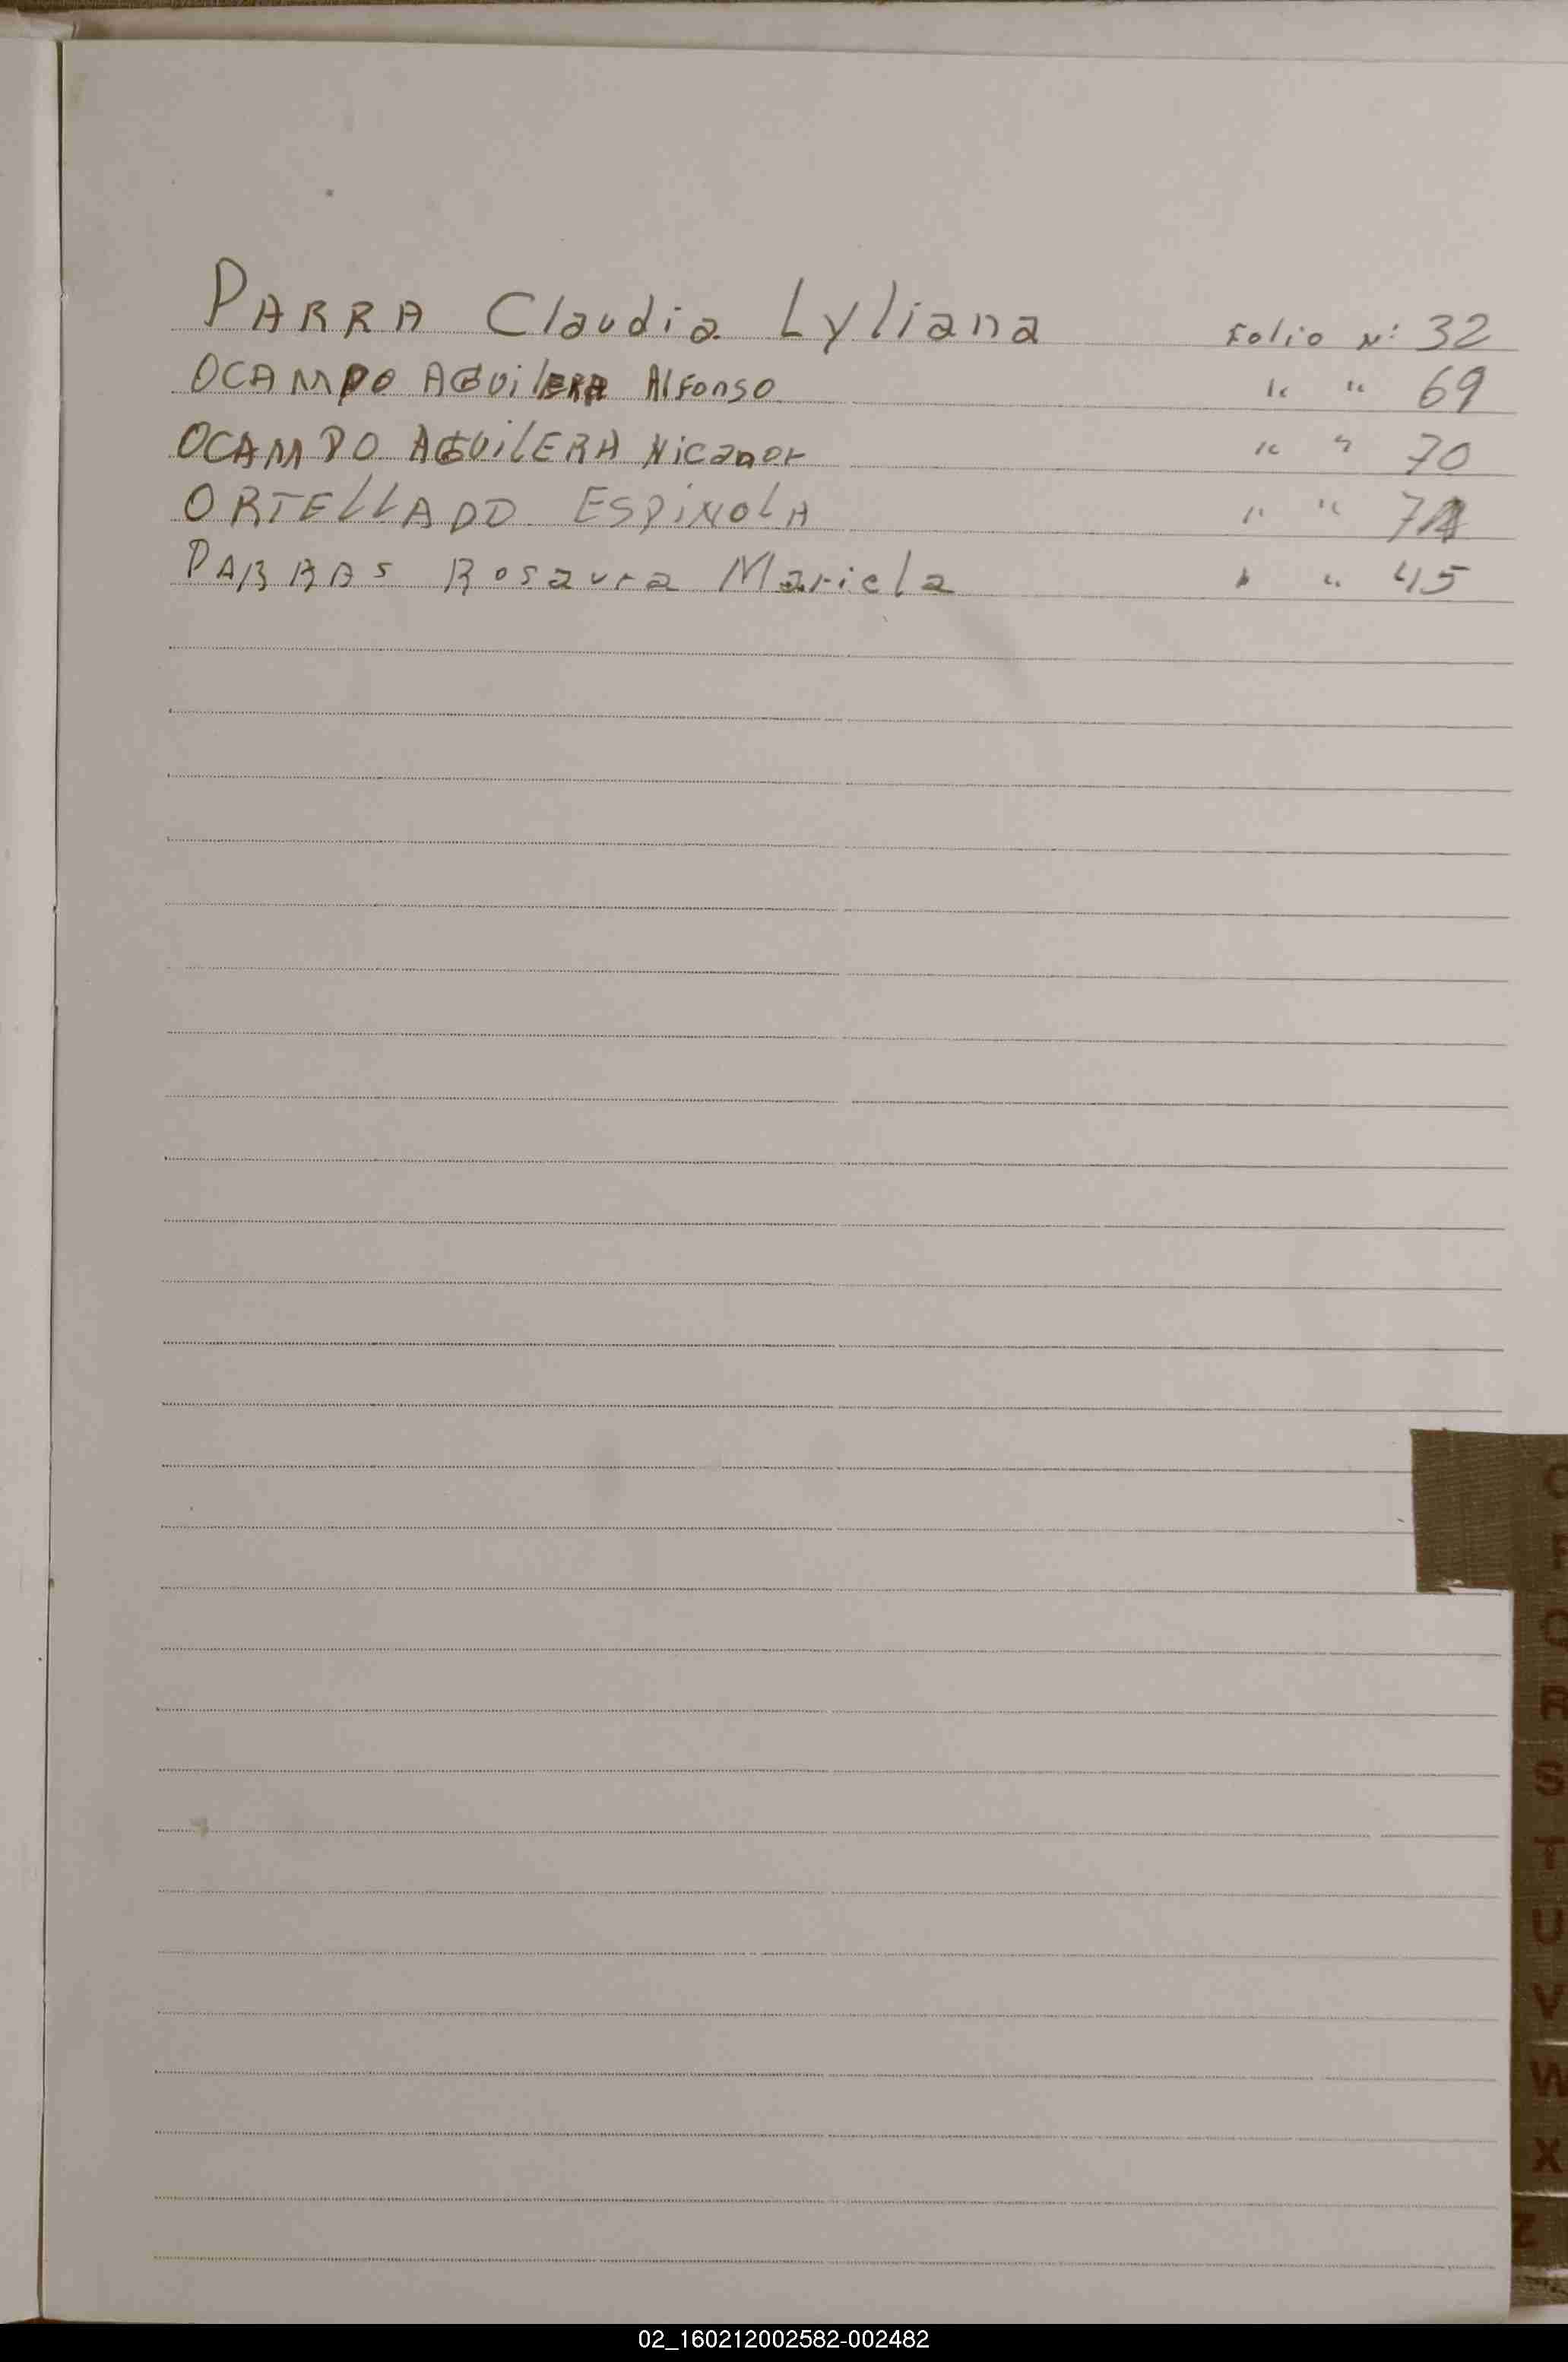 PARRA Claudia Lyliana Folio Nº 32
OCAMPO AGUilERA Alfonso " " 69
OCAMPO AGUilERA Nicanor " " 70
ORTELLADO ESPiNOLA " "
PARRAS Rosaura Mariela " " 45
R
S
T
U
V
W
X
Z
02_160212002582-002482